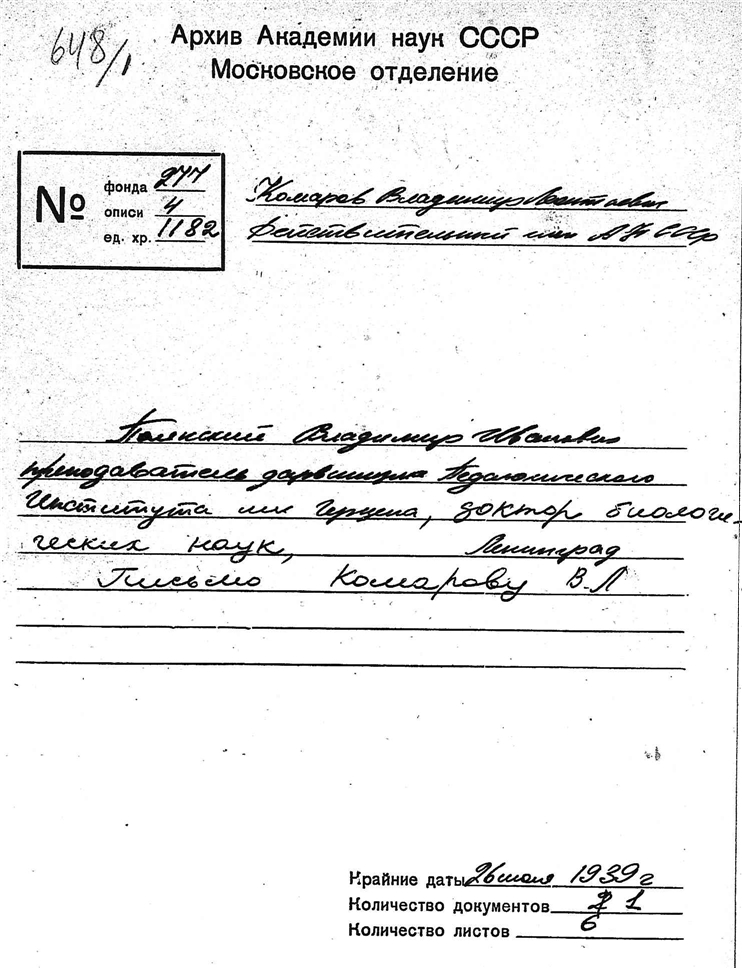 648/1
Архив Академии наук СССР
Московское отделение
№
фонда 277
описи 4
ед. хр. 1182
Комаров Владимир Леонтьевич
Действительный член АН СССР
Полянский Владимир Иванович
преподаватель дарвинизма Педагогического
Института им Герцена, доктор биологи-
ческих наук, Ленинград
Письмо Комарову В.Л
Крайние даты 26 июля 1939 г
Количество документов 1
Количество листов 6